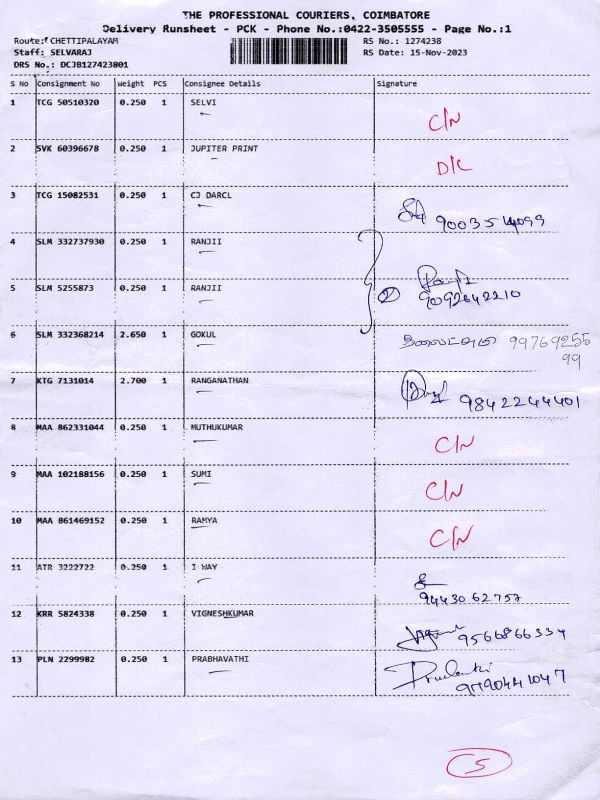 THE PROFESSIONAL COURIERS, COIMBATORE
Delivery Runsheet - PCK - Phone No.:0422-3505555 - Page No.:1
Route: CHETTIPALAYAM RS No.: 1274238
Staff: SELVARAJ RS Date: 15-Nov-2023
DRS No.: DCJB127423801
S No Consignment No Weight PCS Consignee Details Signature
1 TCG 50510320 0.250 1 SELVI
C/N
2 SVK 60396678 0.250 1 JUPITER PRINT
D/L
3 TCG 15082531 0.250 1 CJ DARCL
9003514099
4 SLM 332737930 0.250 1 RANJII
5 SLM 5255873 0.250 1 RANJII
2 9092642210
6 SLM 332368214 2.650 1 GOKUL
99769255
99
7 KTG 7131014 2.700 1 RANGANATHAN
9842244401
8 MAA 862331044 0.250 1 MUTHUKUMAR
C/N
9 MAA 102188156 0.250 1 SUMI
C/N
10 MAA 861469152 0.250 1 RAMYA
C/N
11 ATR 3222722 0.250 1 I WAY
9443062757
12 KRR 5824338 0.250 1 VIGNESHKUMAR
9566866334
13 PLN 2299982 0.250 1 PRABHAVATHI
9790441047
5